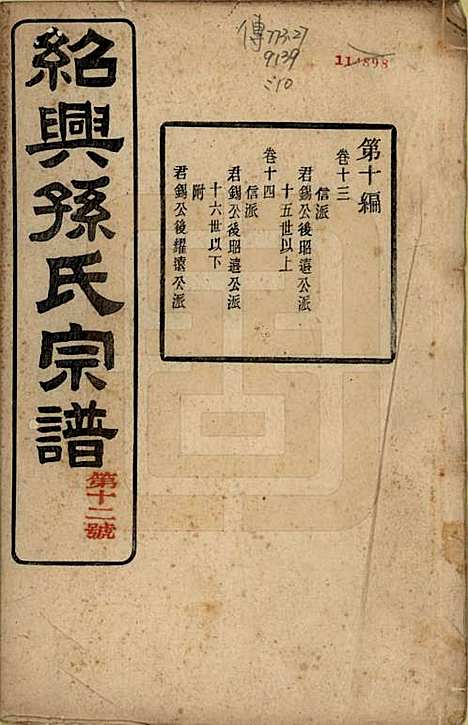 紹興孫氏宗譜
第十二號
傳773.27
9139
:10
第十編
卷十三
信派
君錫公後昭遠公派
十五世以上
卷十四
信派
君錫公後昭遠公派
十六世以下
附
君錫公後耀遠公派